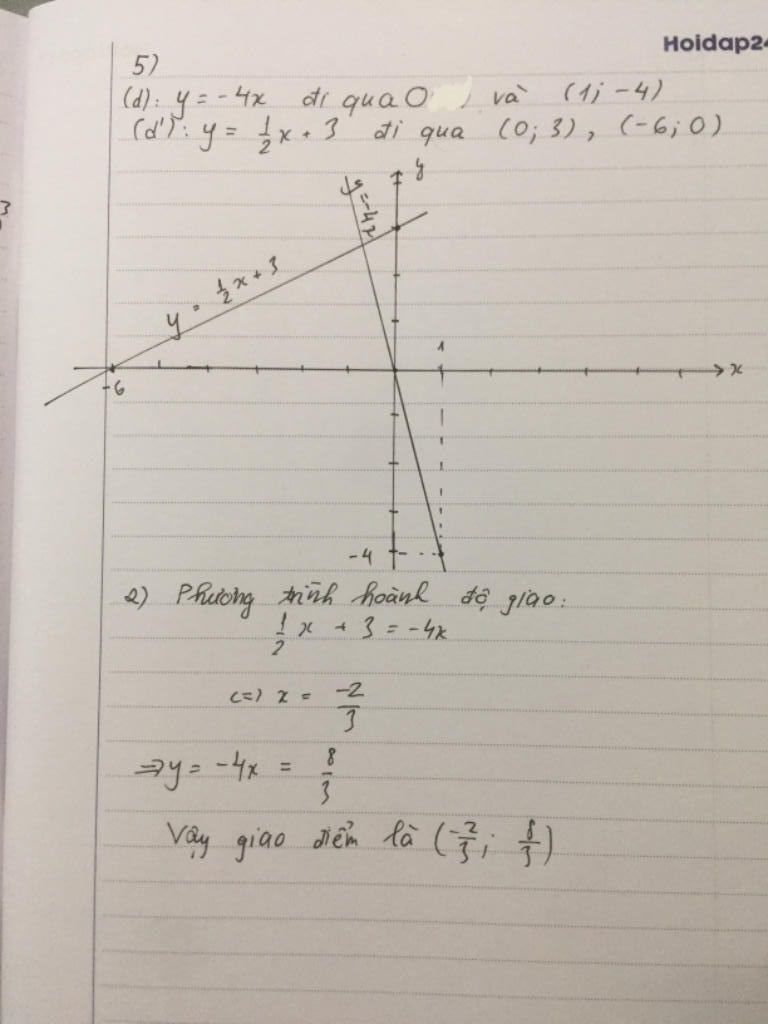 Hoidap24
5)
(d): y = -4x đi qua O và (1; -4)
(d'): y = 1/2 x + 3 đi qua (0; 3), (-6; 0)
y
y = -4x
y = 1/2 x + 3
1
x
-6
-4
2) Phương trình hoành độ giao:
1/2 x + 3 = -4x
<=> x = -2/3
=> y = -4x = 8/3
Vậy giao điểm là (-2/3; 8/3)